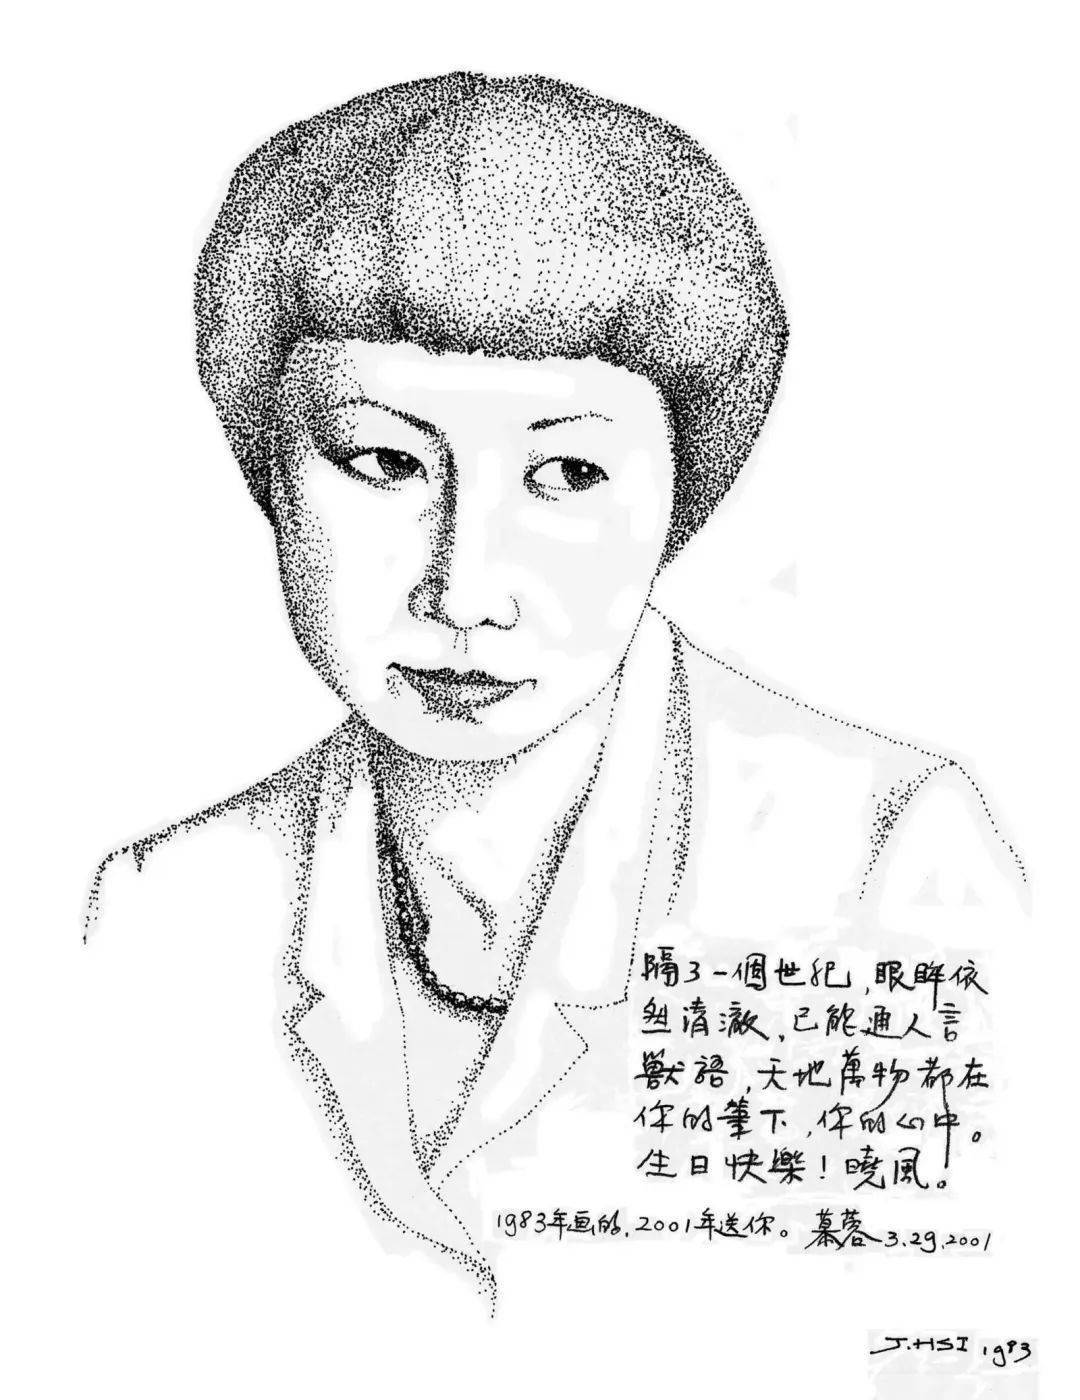 隔了一個世紀,眼眸依
然清澈,已能通人言
獸語,天地萬物都在
你的筆下,你的心中。
生日快樂!曉風。
1983年画的,2001年送你。慕蓉 3.29.2001
J.HSI 1983